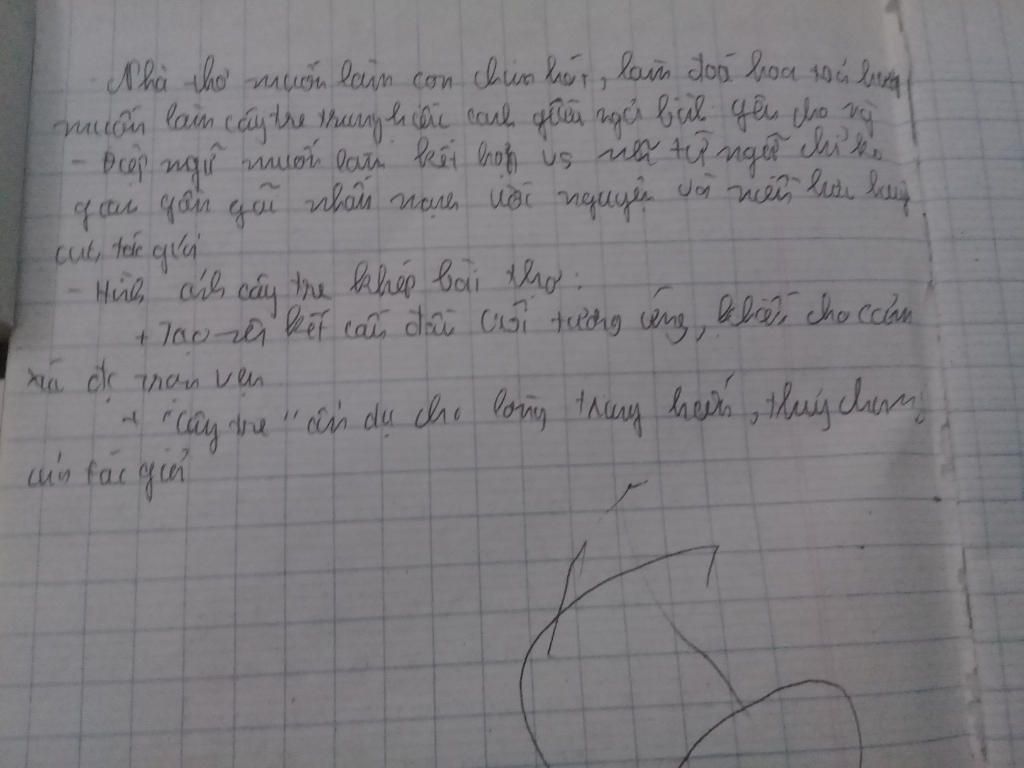 - Nhà thơ muốn làm con chim hót, làm đoá hoa toả hương
muốn làm cây tre trung hiếu canh giữa ngủ bình yên cho
- Điệp ngữ muốn làm kết hợp vs từ ngữ chỉ
gần gũi nhấn mạnh ước nguyện và niềm lưu luyến
của tác giả
- Hình ảnh cây tre khép bài thơ:
+ Tạo nên kết cấu đầu cuối tương ứng, khiến cho cảm
xúc đc trọn vẹn
+ "Cây tre" ẩn dụ cho lòng trung hiếu, thuỷ chung
của tác giả